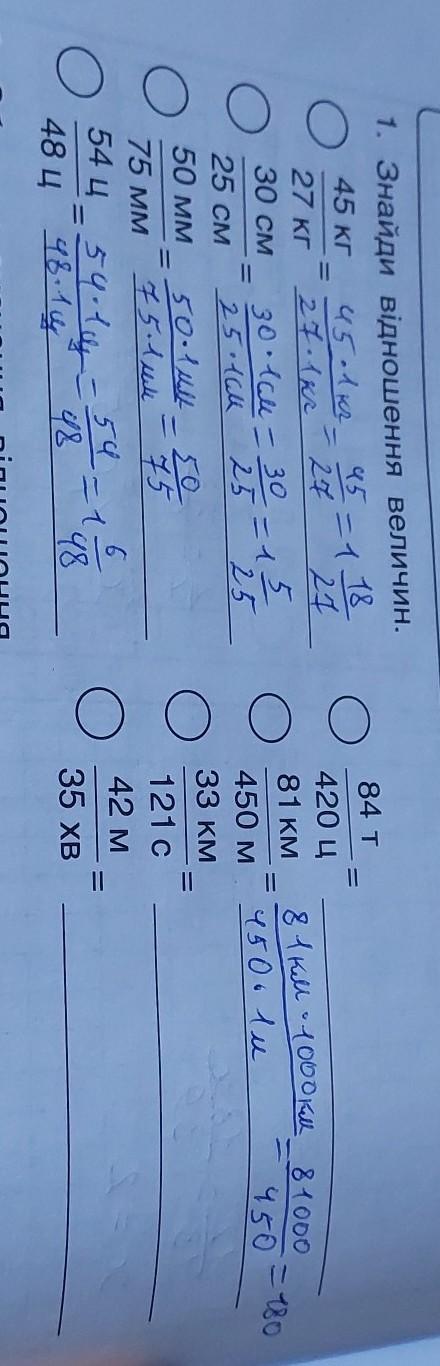 1. Знайди відношення величин.
45 кг / 27 кг = 45·1кг / 27·1кг = 45 / 27 = 1 18 / 27
30 см / 25 см = 30·1см / 25·1см = 30 / 25 = 1 5 / 25
50 мм / 75 мм = 50·1мм / 75·1мм = 50 / 75
54 ц / 48 ц = 54·1ц / 48·1ц = 54 / 48 = 1 6 / 48
84 т / 420 ц =
81 км / 450 м = 81км·1000км / 450·1м = 81000 / 450 = 180
33 км / 121 с =
42 м / 35 хв =